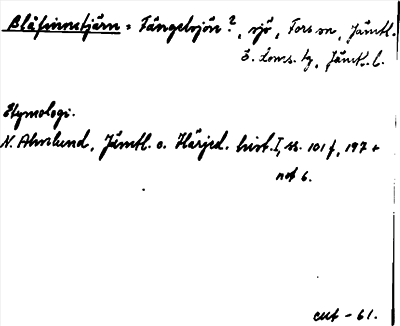 Blåfinnetjärn = Fångelsjön?, sjö, Fors sn, Jämtl.
Ö. Loms. tg, Jämtl. l.
Etymologi.
N. Ahnlund, Jämtl. o. Härjed. hist. I, ss. 101 f, 197 +
not 6.
cut - 61.